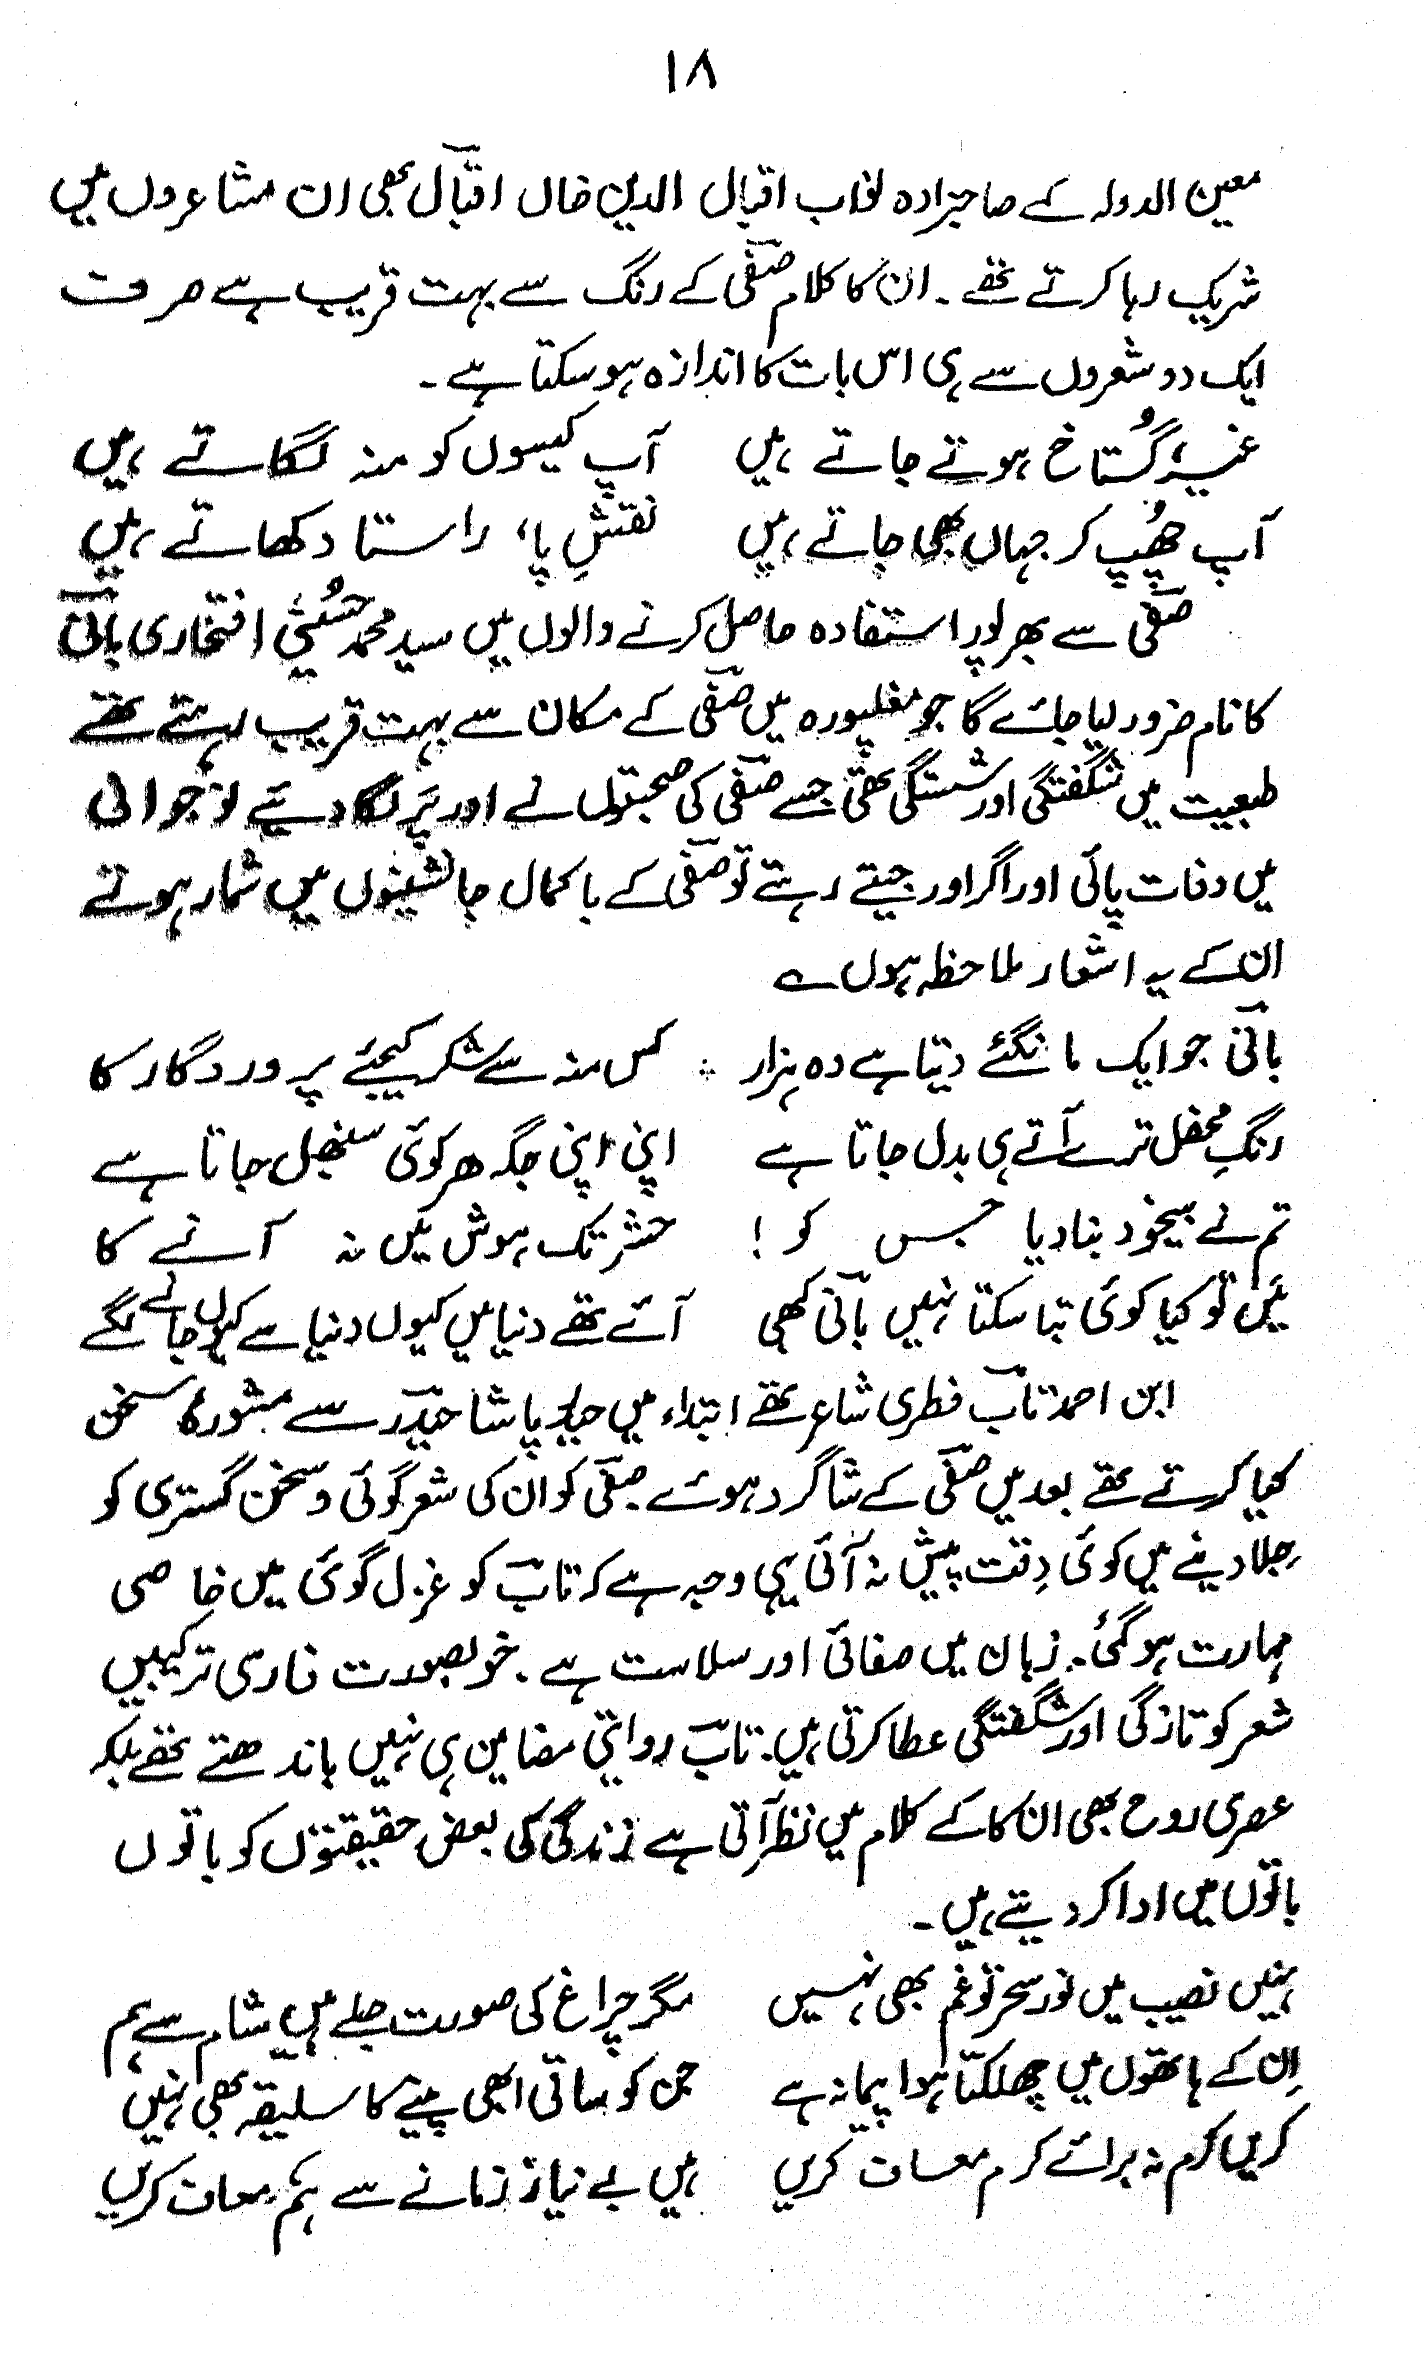 ۱۸
معین الدولہ کے صاحبزادہ نواب اقبال الدین خاں اقبالؔ بھی ان مشاعروں میں
شریک رہا کرتے تھے ۔ ان کا کلام صفیؔ کے رنگ سے بہت قریب ہے صرف
ایک دو شعروں سے ہی اس بات کا اندازہ ہوسکتا ہے ۔
غیر گُستاخ ہوتے جاتے ہیں آپ کیسوں کو منہ لگاتے ہیں
آپ چُھپ کر جہاں بھی جاتے ہیں نقشِ پا، راستا دکھاتے ہیں
صفیؔ سے بھرپور استفادہ حاصل کرنے والوں میں سید محمد حُسینی افتخاری باقیؔ
کا نام ضرور لیا جائے گا جو مغلپورہ میں صفیؔ کے مکان سے بہت قریب رہتے تھے
طبعیت میں شگفتگی اور شستگی تھی جسے صفیؔ کی صحبتوں نے اور پَر لگا دیئے نوجوانی
میں وفات پائی اور اگر اور جیتے رہتے تو صفیؔ کے باکمال جانشینوں میں شمار ہوتے
ان کے یہ اشعار ملاحظہ ہوں ؎
باقیؔ جو ایک مانگئے دیتا ہے وہ ہزار ؞ کس منہ سے شکر کیجئے پروردگار کا
رنگِ محفل ترے آتے ہی بدل جاتا ہے اپنی اپنی جگہ ھر کوئی سنبھل جاتا ہے
تم نے بیخود بنا دیا جس کو ! حشر تک ہوش میں نہ آنے کا
میں تو کیا کوئی بتا سکتا نہیں باقیؔ کبھی آئے تھے دنیا میں کیوں دنیا سے کیوں جانے لگے
ابن احمد تابؔ فطری شاعر تھے ابتداء میں حیدر پاشا حیدرؔ سے مشورۂ سخن
کیا کرتے تھے بعد میں صفیؔ کے شاگرد ہوئے صفیؔ کو ان کی شعر گوئی و سخن گستری کو
جِلا دینے میں کوئی دِقت پیش نہ آئی یہی وجہ ہے کہ تابؔ کو غزل گوئی میں خاصی
مہارت ہوگئی۔ زبان میں صفائی اور سلاست ہے ۔ خوبصورت فارسی ترکیبیں
شعر کو تازگی اور شگفتگی عطا کرتی ہیں۔ تابؔ روایتی مضامین ہی نہیں باندھتے تھے بلکہ
عصری روح بھی ان کا کے کلام میں نظر آتی ہے زندگی کی بعض حقیقتوں کو باتوں
باتوں میں ادا کر دیتے ہیں ۔
نہیں نصیب میں نور سحر تو غم بھی نہیں مگر چراغ کی صورت جلے ہیں شام سے ہم
اِن کے ہاتھوں میں چھلکتا ہوا پیمانہ ہے جن کو ساقی ابھی پینے کا سلیقہ بھی نہیں
کریں کرم نہ برائے کرم معاف کریں ہیں بے نیاز زمانے سے ہم معاف کریں